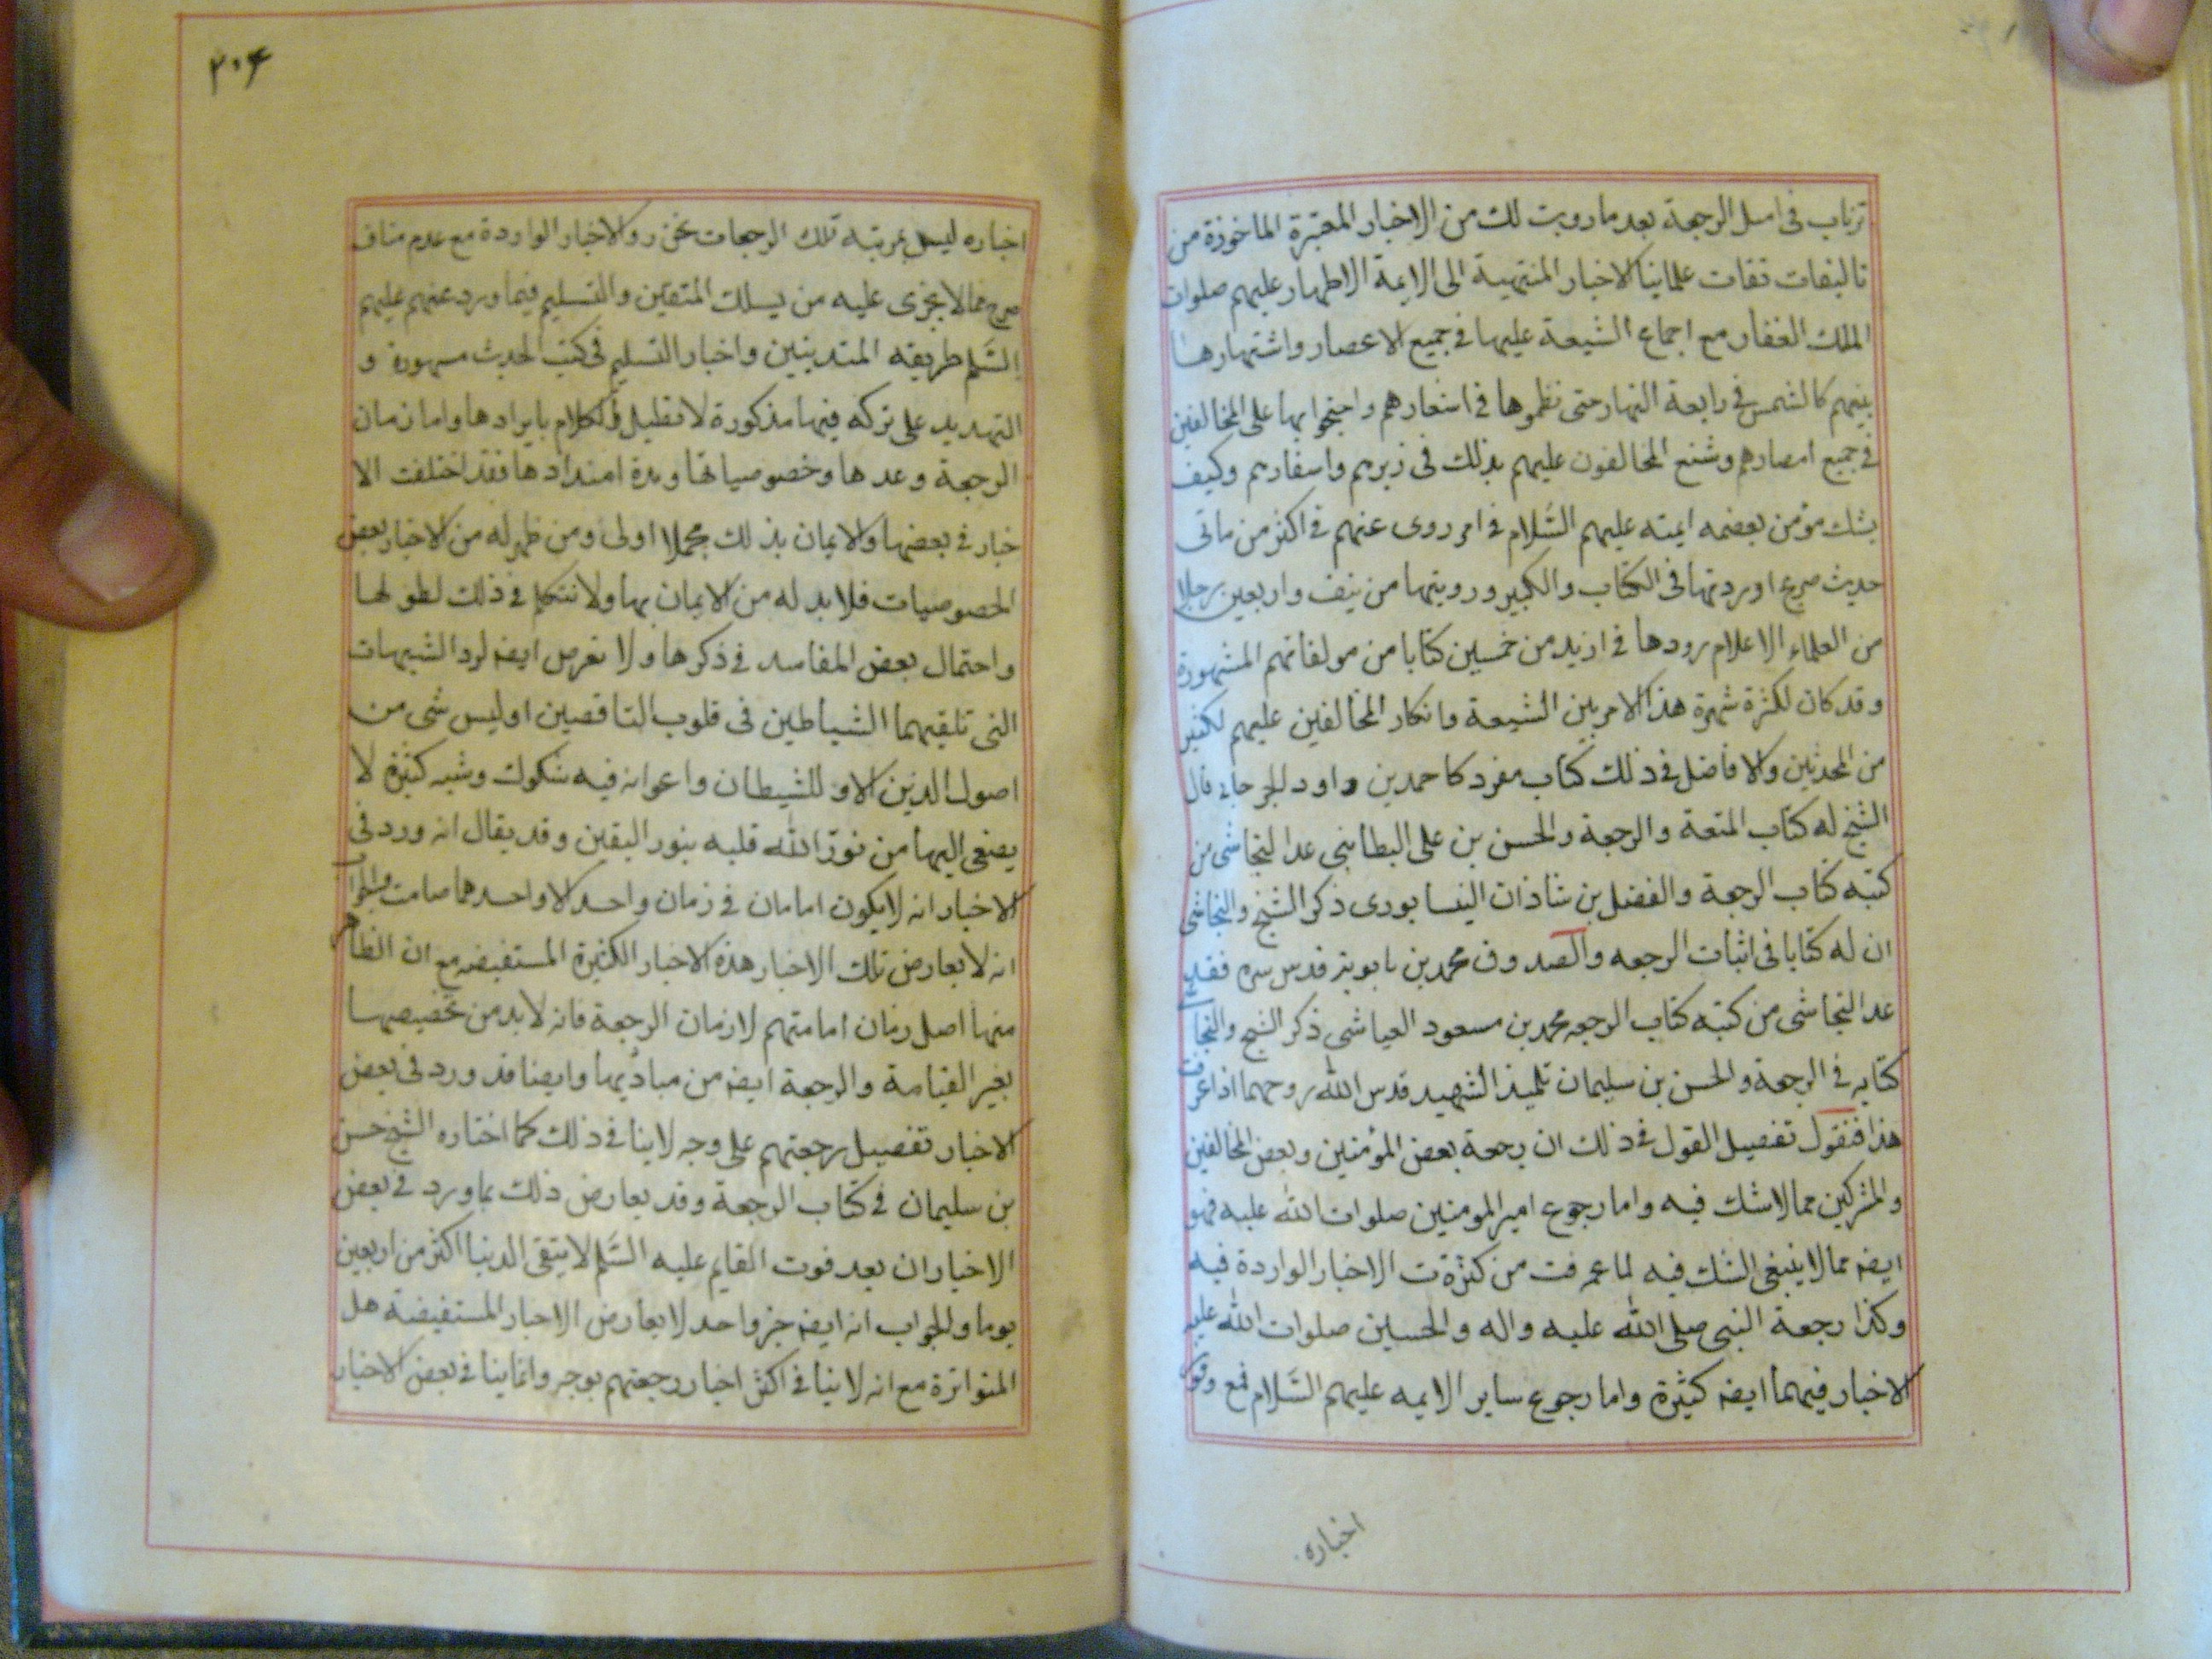 ترتاب فى اصل الرجعة بعد ما رويت لك من الاخبار المعتبرة الماخوذة من
تاليفات ثقات علماينا كالاخبار المنتهية الى الايمة الاطهار عليهم صلوات
الملك الغفار مع اجماع الشيعة عليها فى جميع الاعصار واشتهارها
بينهم كالشمس فى رابعة النهار حتى نظموها فى اشعارهم واحتجوا بها على المخالفين
فى جميع امصارهم وشنع المخالفون عليهم بذلك فى زبرهم واسفارهم وكيف
يشك مؤمن بعضمه ايمته عليهم السَّلام فى امر روى عنهم فى اكثر من ماتى
حديث صريح اوردتها فى الكتاب والكبير ورويتها من نيف واربعين رجلا
من العلماء الاعلام رودها فى ازيد من خمسين كتابا من مولفاتهم المشهورة
وقد كان لكثرة شهرة هذا الامر بين الشيعة وانكار المخالفين عليهم لكثير
من المحدثين والافاضل فى ذلك كتاب مفرد كاحمد بن داود الجرجانى قال
الشيخ له كتاب المتعة والرجعة والحسن بن على البطاينى عدا لنجاشى من
كتبه كتاب الرجعة والفضل بن شاذان النيسابورى ذكر الشيخ والنجاشى
ان له كتابا فى اثبات الرجعه والصدوق محمد بن بابويه قدس سره فقد
عد النجاشى من كتبه كتاب الرجعه محمد بن مسعود العياشى ذكر الشيخ والنجا
كتابه فى الرجعة والحسن بن سليمان تلميذ الشهيد قدس الله روحهما اذا عرفت
هذا فنقول تفصيل القول فى ذلك ان رجعة بعض المؤمنين وبعض المخالفين
والمشركين مما لا شك فيه واما رجوع امير المومنين صلوات الله عليه فهو
ايضه مما لا ينبغى الشك فيه لما عرفت من كثرة ت الاخبار الواردة فيه
وكذا رجعة النبى صلى الله عليه واله والحسين صلوات الله عليه
الاخبار فيهما ايضه كثيرة واما رجوع ساير الايمه عليهم السَّلام فمع وفور
اخباره
۲۰۴
اخباره ليس بمرتبه تلك الرجعات نحن رو الاخبار الواردة مع عدم مناف
صرح مما لا يجزى عليه من يسلك المتقين والتسليم فيما ورد عنهم عليهم
السَّلم طريقه المتدينين واخبار التسليم فى كتب الحدث مسهورة و
التهديد على تركه فيها مذكورة لا نطيل الكلام بايرادها واما زمان
الرجعة وعدها وخصوصياتها ومدة امتدادها فقد اختلفت الا
خبار فى بعضها والايمان بذلك مجملا اولى ومن ظهر له من الاخبار بعض
الخصوصيات فلا بد له من الايمان بها ولا نتكلم فى ذلك لطولها
واحتمال بعض المفاسد فى ذكرها ولا نعرض ايضه لرد الشبهات
التى تلقيهما الشياطين فى قلوب الناقصين او ليس شى من
اصول الدين الا و للشيطان واعوانه فيه شكوك وشبه كثيرة لا
يصغى اليها من نوّر الله قلبه بنور اليقين وقد يقال انه ورد فى
الاخبار انه لا يكون امامان فى زمان واحد الا واحدهما صامت والجواب
انه لا يعارض تلك الاخبار هذه الاخبار الكثيرة المستفيضه مع ان الظاهر
منها اصل زمان امامتهم لا زمان الرجعة فانه لابد من تخصيصها
بغير القيامة والرجعة ايضه من مباديها وايضا قد ورد فى بعض
الاخبار تفصيل رجعتهم على وجه لا ينا فى ذلك كما اختاره الشيخ حسن
بن سليمان فى كتاب الرجعة وقد يعارض ذلك بما ورد فى بعض
الاخبار ان بعد فوت القايم عليه السَّلم لا يبقى الدنيا اكثر من اربعين
يوما والجواب انه ايضه خبر واحد لا يعارض الاخبار المستفيضة هل
المتواترة مع انه لا ينا فى اكثر اخبار رجعتهم بوجه وانما ينا فى بعض الاخبار